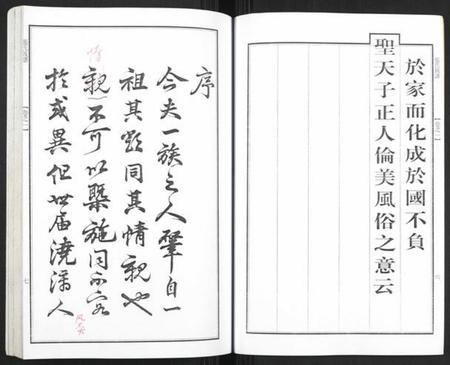 於家而化成於國不負
聖天子正人倫美風俗之意云
序
今夫一族之人肇自一
祖其勢同其情親也
親不可以槩施同亦不容
於或異但世屆澆漓人
七
六